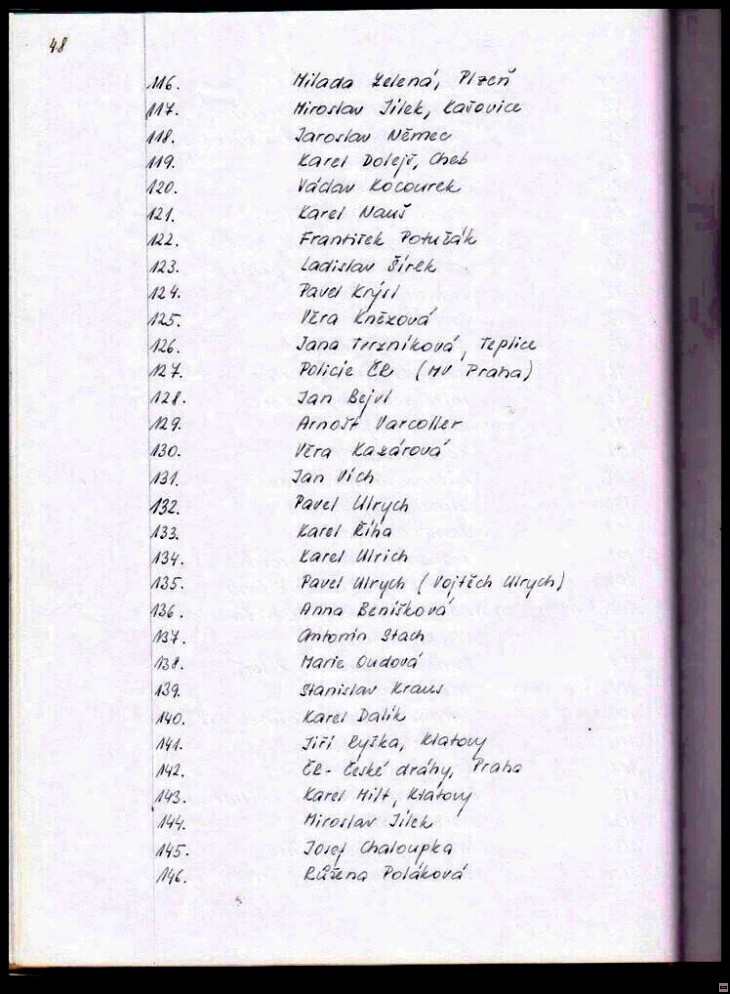 48
116. Milada Zelená, Plzeň
117. Miroslav Jílek, Kašovice
118. Jaroslav Němec
119. Karel Dolejš, Cheb
120. Václav Kocourek
121. Karel Nauš
122. František Potužák
123. Ladislav Šírek
124. Pavel Krýsl
125. Věra Kněžová
126. Jana Tvrzníková, Teplice
127. Policie ČR (MV Praha)
128. Jan Bejvl
129. Arnošt Varcoller
130. Věra Kazárová
131. Jan Vích
132. Pavel Ulrych
133. Karel Říha
134. Karel Ulrich
135. Pavel Ulrych (Vojtěch Ulrych)
136. Anna Benišková
137. Antonín Stach
138. Marie Oudová
139. Stanislav Kraus
140. Karel Dalík
141. Jiří Ryška, Klatovy
142. ČR - České dráhy, Praha
143. Karel Hilt, Klatovy
144. Miroslav Jílek
145. Josef Chaloupka
146. Růžena Poláková